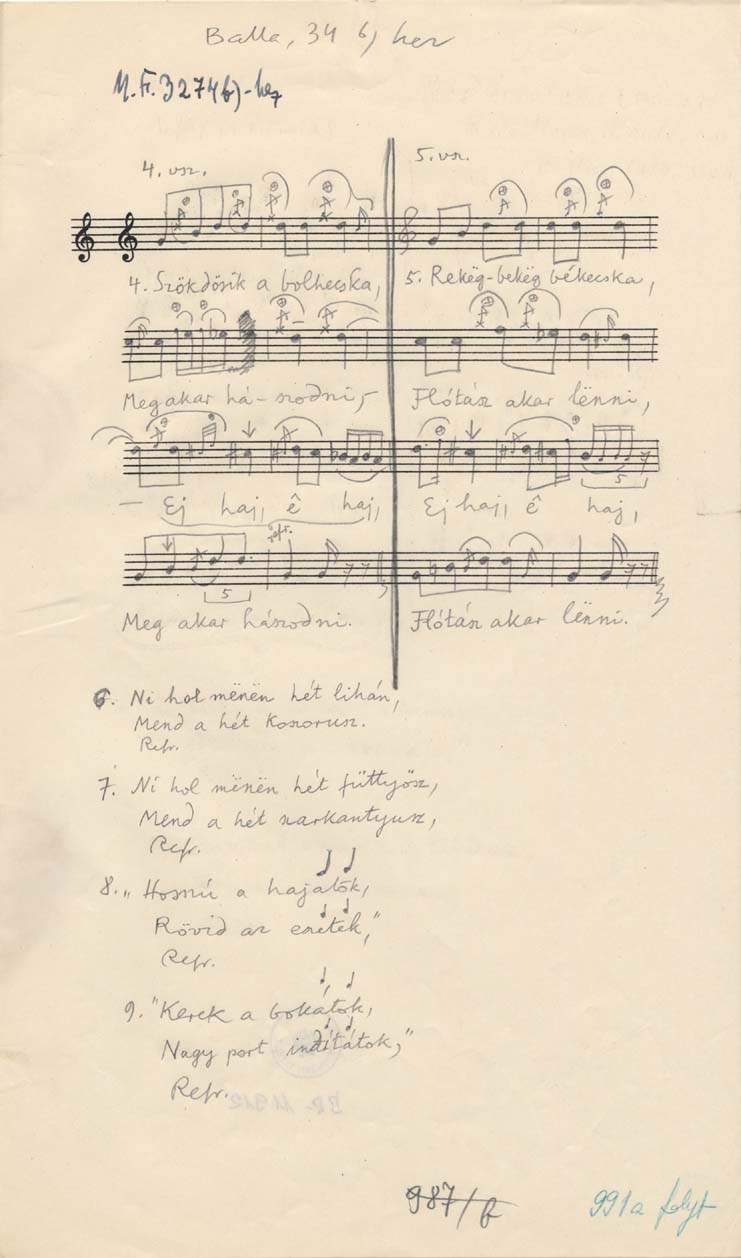 Balla, 34 b) hez
M.F. 3274b)-hez
4. vsz.
5. vsz.
4. Szökdösik a bolhecska,
5. Rekëg-bekëg békecska,
Meg akar há-szodni,
Flótász akar lënni,
— Ej haj, ê haj,
Ej haj, ê haj,
refr.
5
5
Meg akar hászodni.
Flótász akar lënni.
6. Ni hol mënën hét lihán,
Mend a hét koszorusz.
Refr.
7. Ni hol mënën hét füttyösz,
Mend a hét szarkantyusz,
Refr.
8. „Hosszú a hajatok,
Rövid az eszetek,"
Refr.
9. "Kerek a bokátok,
Nagy port indítátok,"
Refr.
987/f
991a folyt